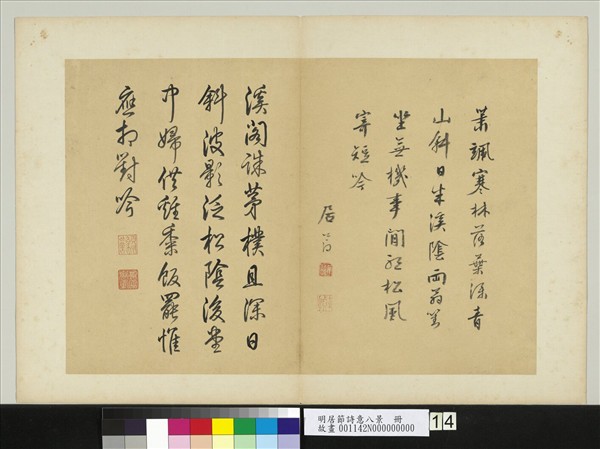 蕭颯寒林落葉深青
山斜日半溪陰兩翁對
坐無機事閒聽松風
寄短吟
居節
溪閣誅茅樸且深日
斜波影泛松陰後堂
中婦供雞黍飯罷惟
應相對吟
明居節詩意八景　冊
故畫 001142N000000000
14